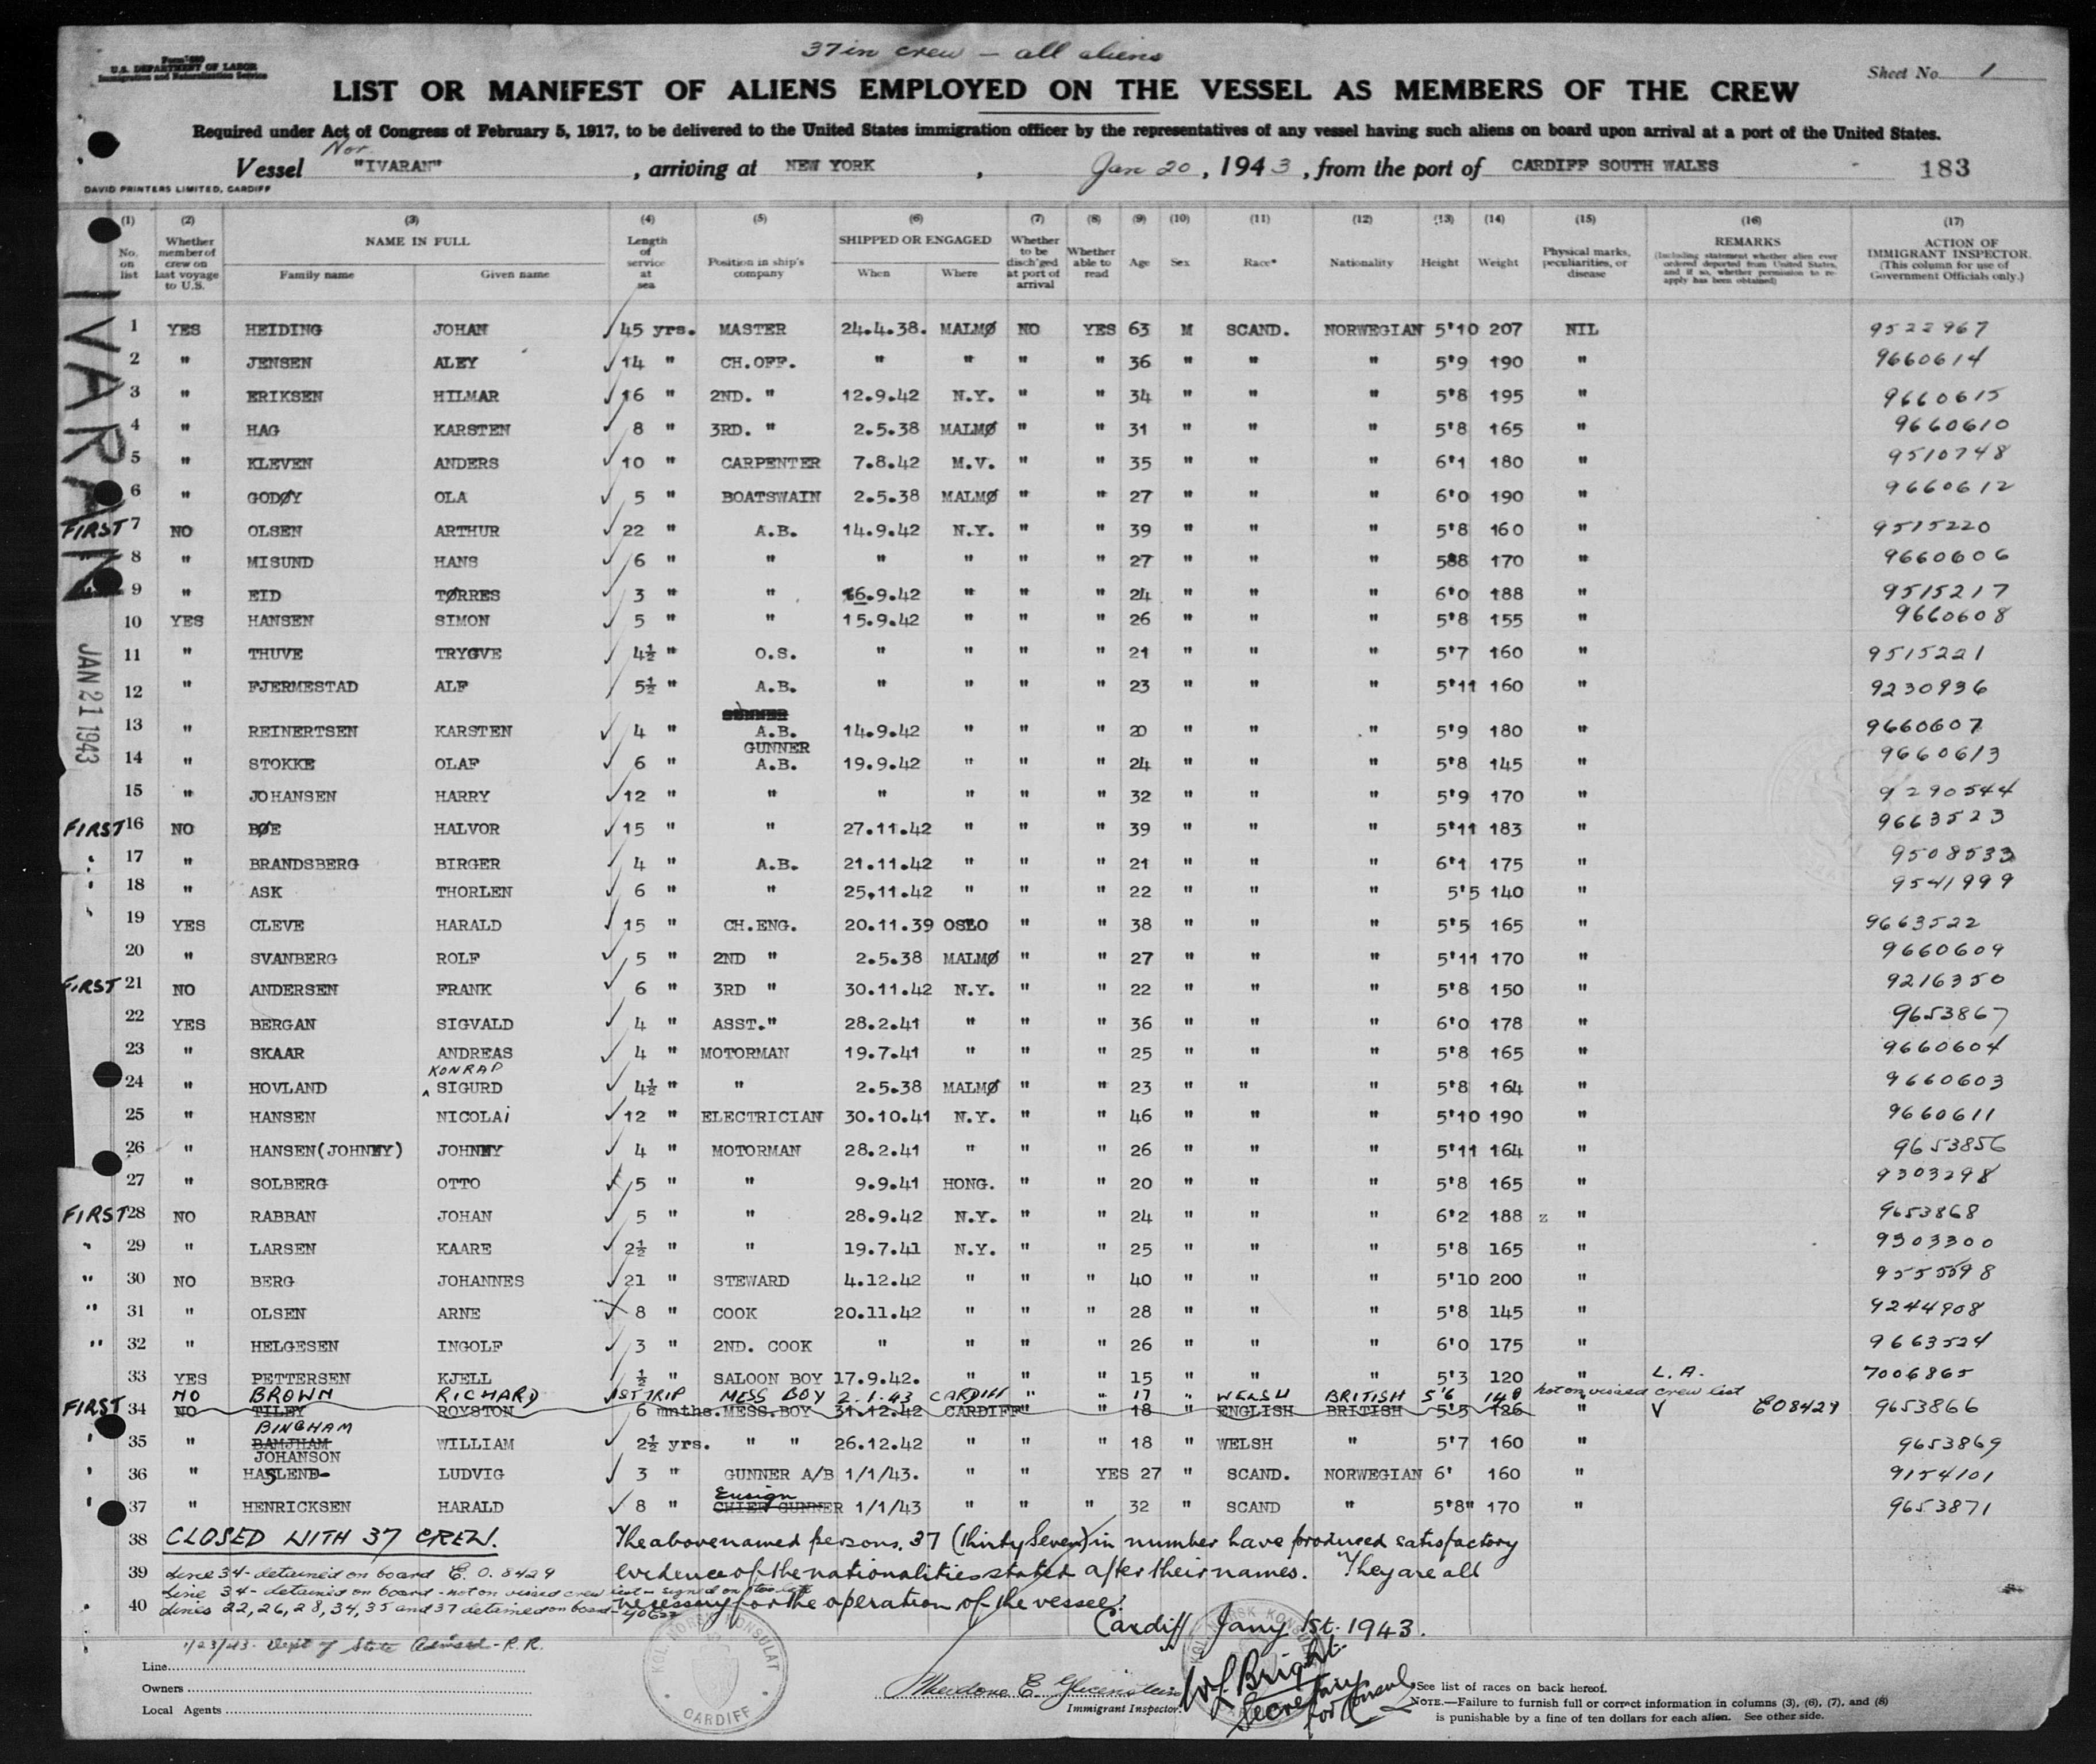 37 in crew — all aliens
Form 680
U.S. DEPARTMENT OF LABOR
Immigration and Naturalization Service
Sheet No. 1
LIST OR MANIFEST OF ALIENS EMPLOYED ON THE VESSEL AS MEMBERS OF THE CREW
Required under Act of Congress of February 5, 1917, to be delivered to the United States immigration officer by the representatives of any vessel having such aliens on board upon arrival at a port of the United States.
Nor.
Vessel "IVARAN", arriving at NEW YORK, Jan 20, 1943, from the port of CARDIFF SOUTH WALES 183
DAVID PRINTERS LIMITED, CARDIFF
(1) (2) (3) (4) (5) (6) (7) (8) (9) (10) (11) (12) (13) (14) (15) (16) (17)
No. on list
Whether member of crew on last voyage to U.S.
NAME IN FULL
Family name Given name
Length of service at sea
Position in ship's company
SHIPPED OR ENGAGED
When Where
Whether to be disch'ged at port of arrival
Whether able to read
Age Sex Race* Nationality Height Weight
Physical marks, peculiarities, or disease
REMARKS
(Including statement whether alien ever ordered deported from United States, and if so, whether permission to re-apply has been obtained)
ACTION OF IMMIGRANT INSPECTOR.
(This column for use of Government Officials only.)
IVARAN
JAN 21 1943
1 YES HEIDING JOHAN 45 yrs. MASTER 24.4.38. MALMØ NO YES 63 M SCAND. NORWEGIAN 5'10 207 NIL 9522967
2 " JENSEN ALEY 14 " CH.OFF. " " " " 36 " " " 5'9 190 " 9660614
3 " ERIKSEN HILMAR 16 " 2ND. " 12.9.42 N.Y. " " 34 " " " 5'8 195 " 9660615
4 " HAG KARSTEN 8 " 3RD. " 2.5.38 MALMØ " " 31 " " " 5'8 165 " 9660610
5 " KLEVEN ANDERS 10 " CARPENTER 7.8.42 M.V. " " 35 " " " 6'1 180 " 9510748
6 " GODØY OLA 5 " BOATSWAIN 2.5.38 MALMØ " " 27 " " " 6'0 190 " 9660612
FIRST 7 NO OLSEN ARTHUR 22 " A.B. 14.9.42 N.Y. " " 39 " " " 5'8 160 " 9515220
8 " MISUND HANS 6 " " " " " " 27 " " " 588 170 " 9660606
9 " EID TØRRES 3 " " 16.9.42 " " " 24 " " " 6'0 188 " 9515217
10 YES HANSEN SIMON 5 " " 15.9.42 " " " 26 " " " 5'8 155 " 9660608
11 " THUVE TRYGVE 4½ " O.S. " " " " 21 " " " 5'7 160 " 9515221
12 " FJERMESTAD ALF 5½ " A.B. " " " " 23 " " " 5'11 160 " 9230936
GUNNER
13 " REINERTSEN KARSTEN 4 " A.B. 14.9.42 " " " 20 " " " 5'9 180 " 9660607
GUNNER
14 " STOKKE OLAF 6 " A.B. 19.9.42 " " " 24 " " " 5'8 145 " 9660613
15 " JOHANSEN HARRY 12 " " " " " " 32 " " " 5'9 170 " 9290544
FIRST 16 NO BØE HALVOR 15 " " 27.11.42 " " " 39 " " " 5'11 183 " 9663523
" 17 " BRANDSBERG BIRGER 4 " A.B. 21.11.42 " " " 21 " " " 6'1 175 " 9508533
" 18 " ASK THORLEN 6 " " 25.11.42 " " " 22 " " " 5'5 140 " 9541999
" 19 YES CLEVE HARALD 15 " CH.ENG. 20.11.39 OSLO " " 38 " " " 5'5 165 " 9663522
20 " SVANBERG ROLF 5 " 2ND " 2.5.38 MALMØ " " 27 " " " 5'11 170 " 9660609
FIRST 21 NO ANDERSEN FRANK 6 " 3RD " 30.11.42 N.Y. " " 22 " " " 5'8 150 " 9216350
22 YES BERGAN SIGVALD 4 " ASST." 28.2.41 " " " 36 " " " 6'0 178 " 9653867
23 " SKAAR ANDREAS 4 " MOTORMAN 19.7.41 " " " 25 " " " 5'8 165 " 9660604
KONRAD
24 " HOVLAND ^ SIGURD 4½ " " 2.5.38 MALMØ " " 23 " " " 5'8 164 " 9660603
25 " HANSEN NICOLAi 12 " ELECTRICIAN 30.10.41 N.Y. " " 46 " " " 5'10 190 " 9660611
26 " HANSEN(JOHNNY) JOHNNY 4 " MOTORMAN 28.2.41 " " " 26 " " " 5'11 164 " 9653856
27 " SOLBERG OTTO 5 " " 9.9.41 HONG. " " 20 " " " 5'8 165 " 9303298
FIRST 28 NO RABBAN JOHAN 5 " " 28.9.42 N.Y. " " 24 " " " 6'2 188 z " 9653868
" 29 " LARSEN KAARE 2½ " " 19.7.41 N.Y. " " 25 " " " 5'8 165 " 9303300
" 30 NO BERG JOHANNES 21 " STEWARD 4.12.42 " " " 40 " " " 5'10 200 " 9555598
" 31 " OLSEN ARNE 8 " COOK 20.11.42 " " " 28 " " " 5'8 145 " 9244908
" 32 " HELGESEN INGOLF 3 " 2ND. COOK " " " " 26 " " " 6'0 175 " 9663524
33 YES PETTERSEN KJELL ½ " SALOON BOY 17.9.42. " " " 15 " " " 5'3 120 " L.A. 7006865
NO BROWN RICHARD 1ST TRIP MESS BOY 2.1.43 CARDIFF " " 17 " WELSH BRITISH 5'6 140 not on visaed crew list
FIRST 34 NO TILEY ROYSTON 6 mnths. MESS.BOY 31.12.42 CARDIFF " " 18 " ENGLISH BRITISH 5'5 126 " V E08429 9653866
BINGHAM
" 35 " BAMJHAM WILLIAM 2½ yrs. " " 26.12.42 " " " 18 " WELSH " 5'7 160 " 9653869
JOHANSON
" 36 " HASLENE LUDVIG 3 " GUNNER A/B 1/1/43. " " YES 27 " SCAND. NORWEGIAN 6' 160 " 9154101
Ensign
" 37 " HENRICKSEN HARALD 8 " CHIEF GUNNER 1/1/43 " " " 32 " SCAND " 5'8" 170 " 9653871
38 CLOSED WITH 37 CREW. The abovenamed persons, 37 (Thirty Seven) in number have produced satisfactory
39 Line 34 - detained on board E.O. 8429 evidence of the nationalities stated after their names. They are all
Line 34 - detained on board - not on visaed crew list - signed on too late
40 Lines 22, 26, 28, 34, 35 and 37 detained on board necessary for the operation of the vessel.
Cardiff Jany 1st. 1943.
1/23/43. Dept of State Advised - R.R.
Line
Owners
Local Agents
KGL. NORSK KONSULAT CARDIFF
Theodore E.
Immigrant Inspector.
KGL. NORSK KONSULAT
W. Bright
Secretary
for Consul
See list of races on back hereof.
NOTE.—Failure to furnish full or correct information in columns (3), (6), (7), and (8)
is punishable by a fine of ten dollars for each alien. See other side.